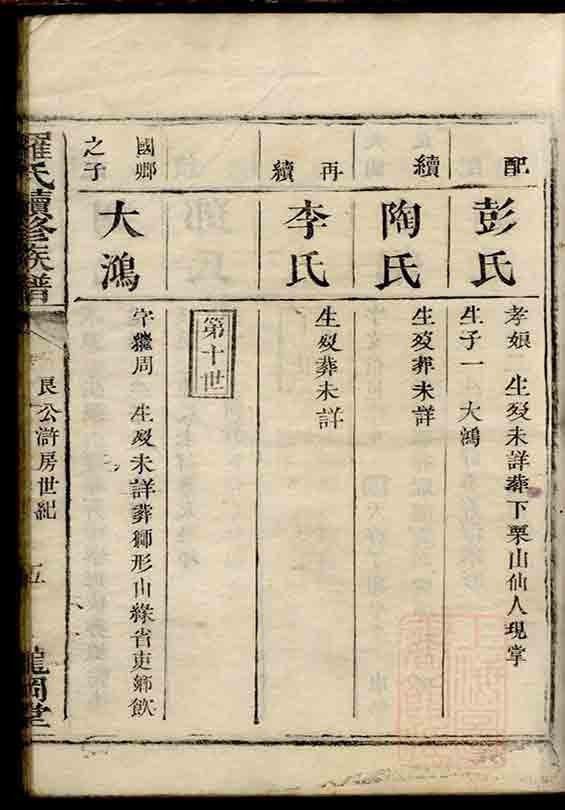 配
彭氏
孝娘 生歿未詳葬下栗山仙人現掌
生子一 大鴻
續
陶氏
生歿葬未詳
再續
李氏
生歿葬未詳
第十世
國鄉之子
大鴻
字繼周 生歿未詳葬獅形山緣省吏鄉飲
羅氏續修族譜
艮公滸房世紀
五
龍岡堂